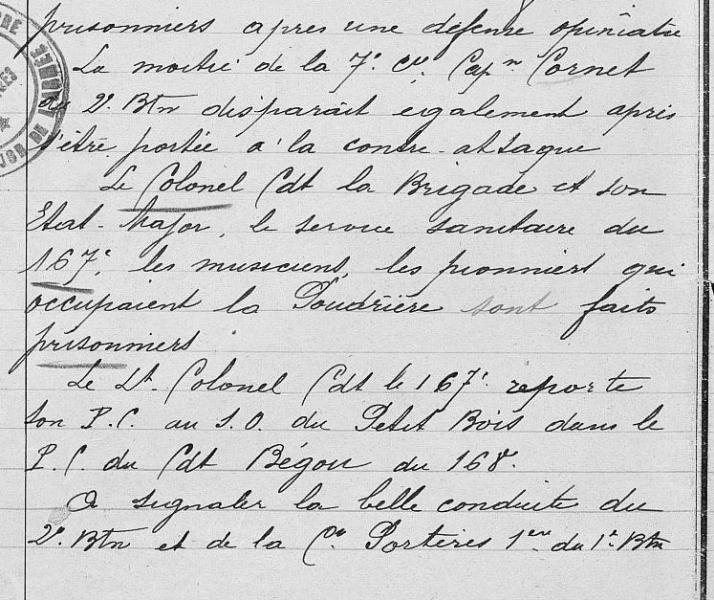 prisonniers après une défense opiniâtre
La moitié de la 7e Cie Capne Cornet
du 2e Btn disparaît également après
s'être portée à la contre-attaque
Le Colonel Cdt la Brigade et son
Etat-Major, le service sanitaire du
167e, les musiciens, les pionniers qui
occupaient la Poudrière sont faits
prisonniers
Le Lt. Colonel Cdt le 167e reporte
son P.C. au S.O. du Petit Bois dans le
P.C. du Cdt Bégou du 168.
A signaler la belle conduite du
2e Btn et de la Cie Portères 1ere du 1e Btn